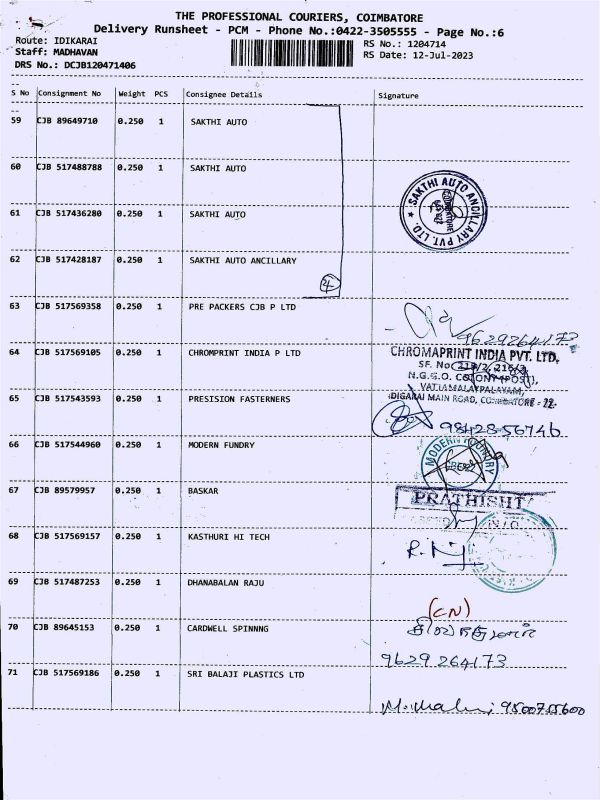 THE PROFESSIONAL COURIERS, COIMBATORE
Delivery Runsheet - PCM - Phone No.:0422-3505555 - Page No.:6
Route: IDIKARAI
Staff: MADHAVAN
DRS No.: DCJB120471406
RS No.: 1204714
RS Date: 12-Jul-2023
S No Consignment No Weight PCS Consignee Details Signature
59 CJB 89649710 0.250 1 SAKTHI AUTO
60 CJB 517488788 0.250 1 SAKTHI AUTO
61 CJB 517436280 0.250 1 SAKTHI AUTO
SAKTHI AUTO ANCILLARY PVT. LTD.
62 CJB 517428187 0.250 1 SAKTHI AUTO ANCILLARY
4
63 CJB 517569358 0.250 1 PRE PACKERS CJB P LTD
9629264173
64 CJB 517569105 0.250 1 CHROMPRINT INDIA P LTD
CHROMAPRINT INDIA PVT. LTD.
SF. No
N.G.G.O. COLONY (POST),
VATIAMALAYPALAYAM,
IDIGARAI MAIN ROAD, COIMBATORE - 22.
65 CJB 517543593 0.250 1 PRESISION FASTERNERS
98428-56746
66 CJB 517544960 0.250 1 MODERN FUNDRY
MODERN FOUNDRY
67 CJB 89579957 0.250 1 BASKAR
PRATHISHT
68 CJB 517569157 0.250 1 KASTHURI HI TECH
69 CJB 517487253 0.250 1 DHANABALAN RAJU
(CN)
70 CJB 89645153 0.250 1 CARDWELL SPINNNG
9629 264173
71 CJB 517569186 0.250 1 SRI BALAJI PLASTICS LTD
9500705600